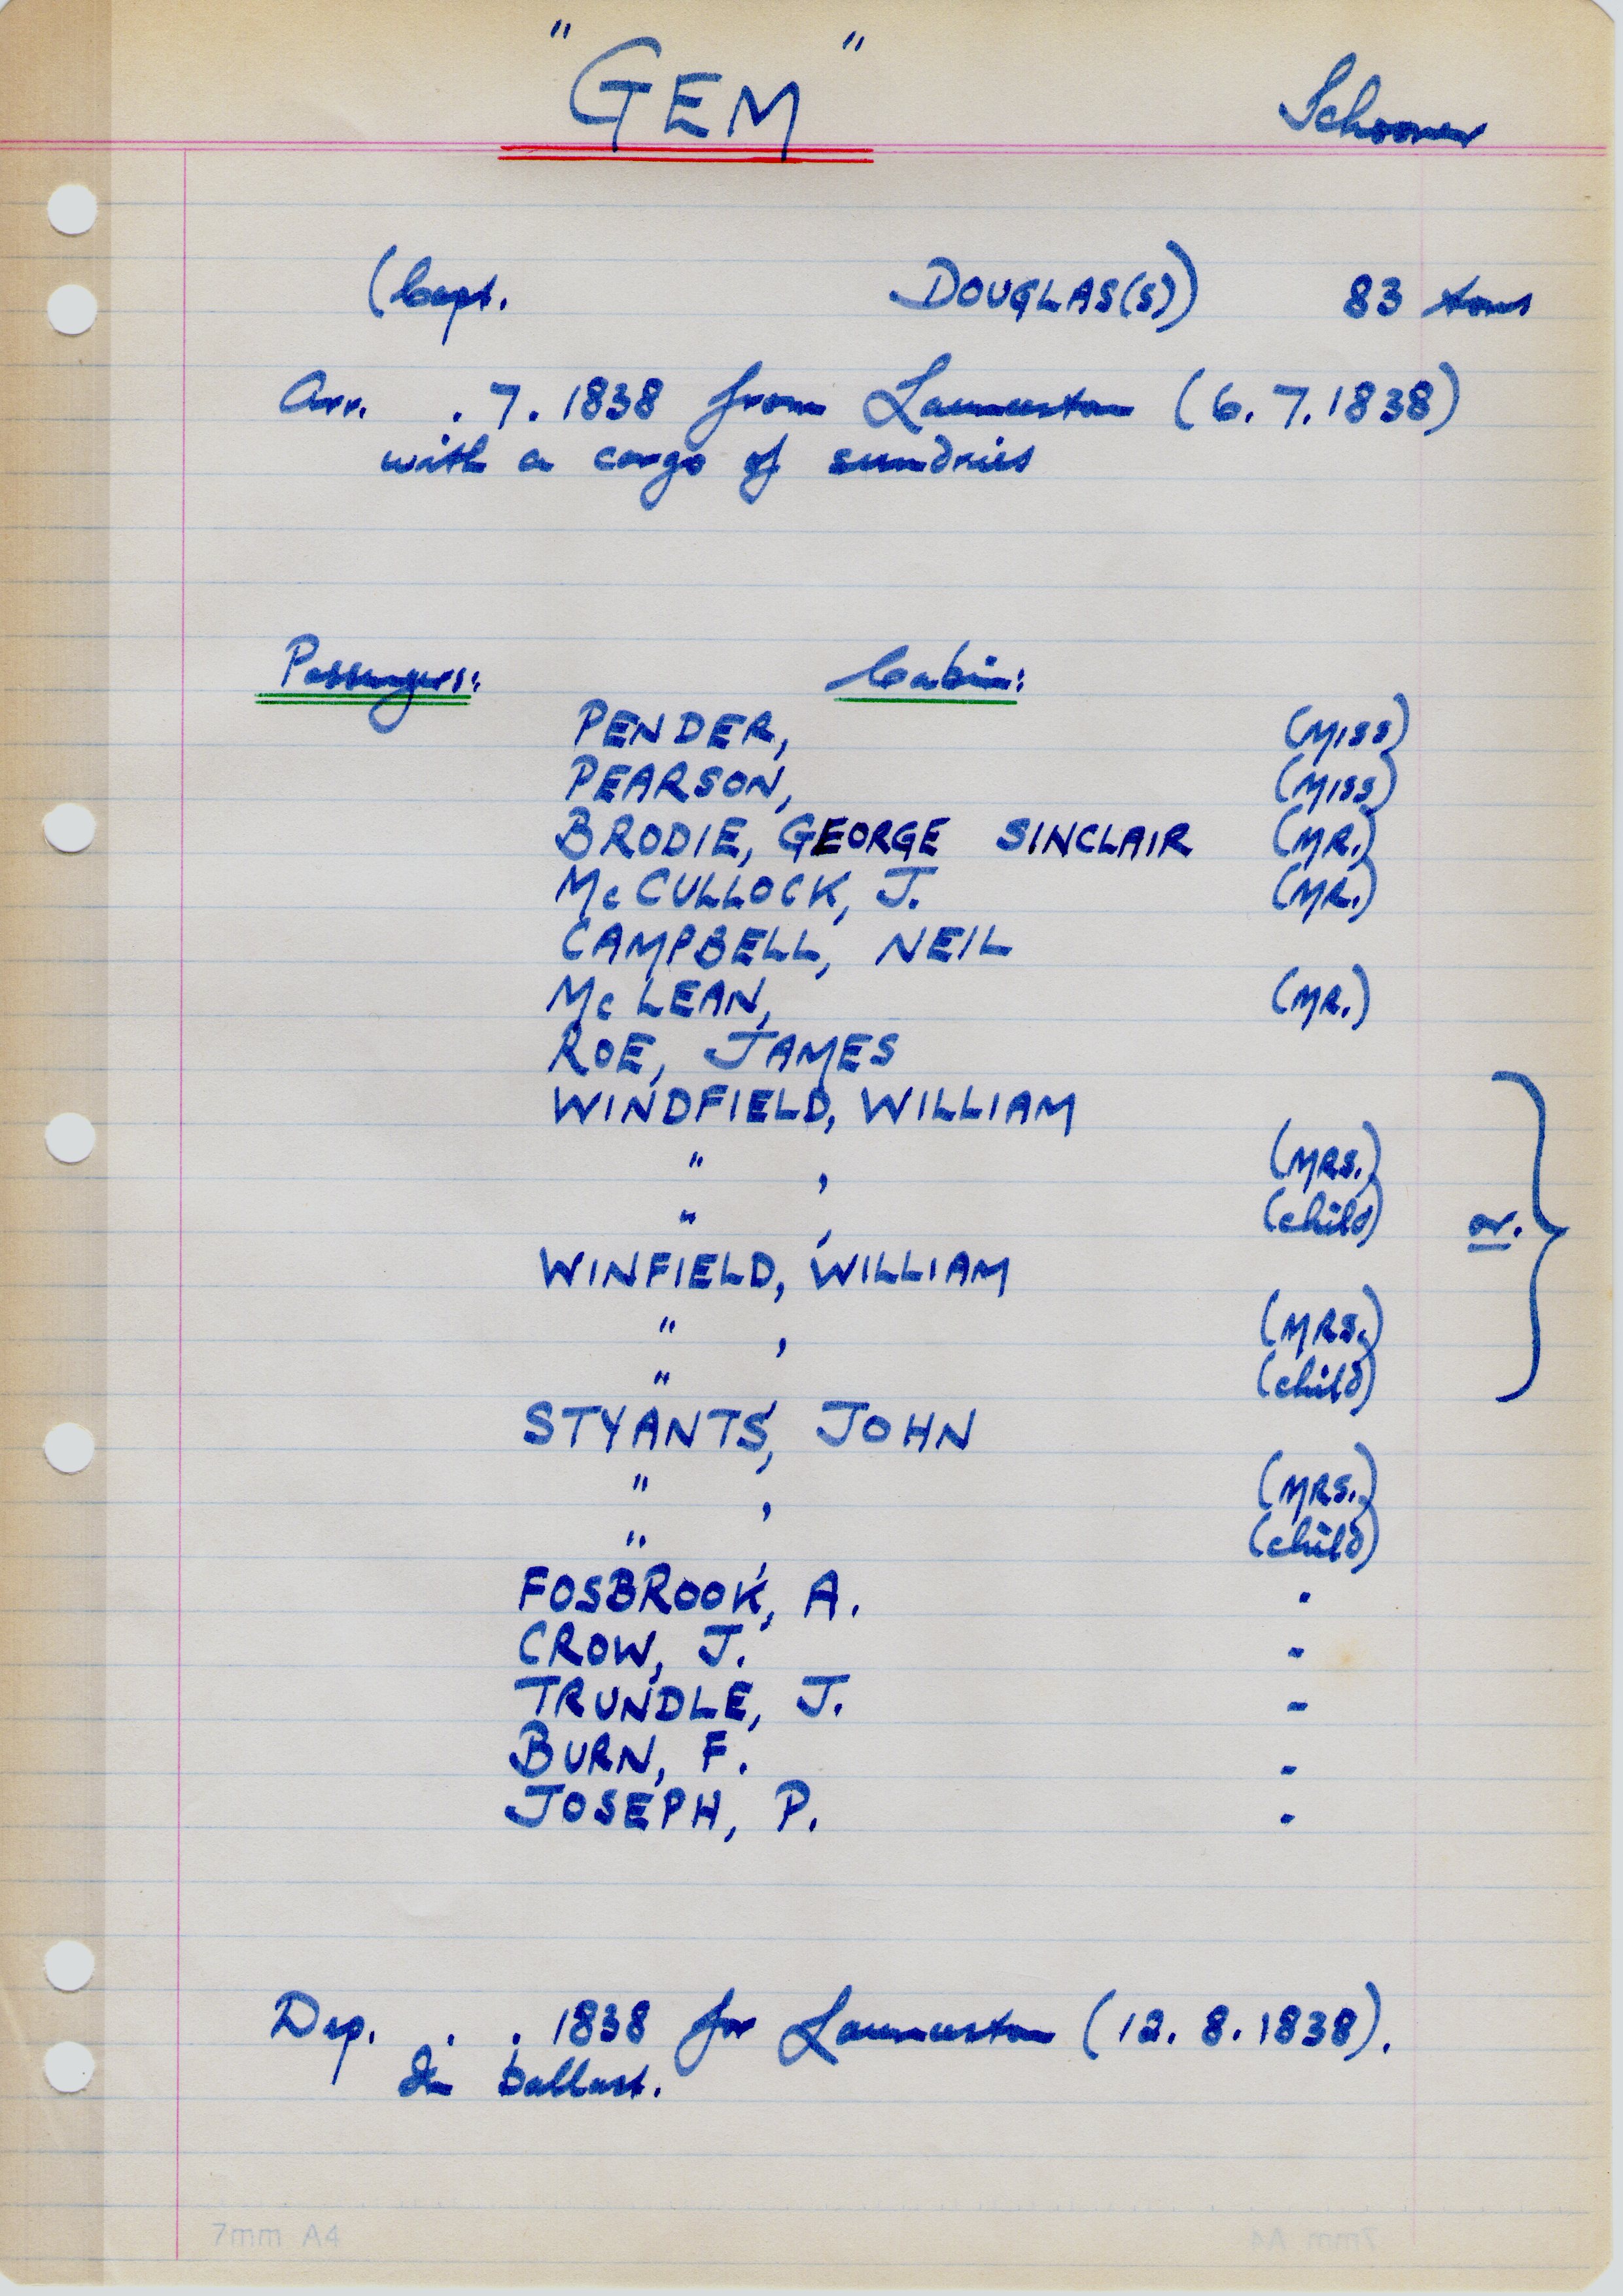 "GEM" Schooner
(Capt. DOUGLAS(S)) 83 tons
Arr. . 7. 1838 from Launceston (6. 7. 1838)
with a cargo of sundries
Passengers: Cabin:
PENDER, (MISS)
PEARSON, (MISS)
BRODIE, GEORGE SINCLAIR (MR.)
McCULLOCK, J. (MR.)
CAMPBELL, NEIL
McLEAN, (MR.)
ROE, JAMES
WINDFIELD, WILLIAM
" , (MRS.)
" , (child) or.
WINFIELD, WILLIAM
" , (MRS.)
" (child)
STYANTS, JOHN
" , (MRS.)
" , (child)
FOSBROOK, A. -
CROW, J. -
TRUNDLE, J. -
BURN, F. -
JOSEPH, P. -
Dep. . . 1838 for Launceston (12. 8. 1838).
In ballast.
7mm A4
7mm A4